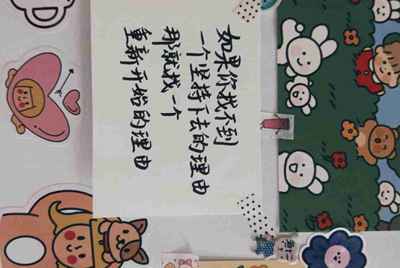 如果你找不到
一个坚持下去的理由
那就找一个
重新开始的理由